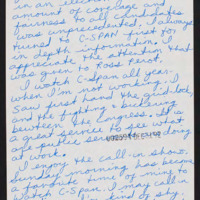 in an election
amount of coverage and
fairness to all candidates
was unprecedented. I always
turned to C-SPAN first for
in depth information. I
appreciate the attention that
was given to Ross Perot.
I watch C-Span all year
when I'm not working. I
saw first hand the gridlock
and the fighting & bickering
between the Congress. It's
a great service to see what
our public servants are doing
at work.
I enjoy the call-in show.
Sunday morning has become
a favorite time of mine to
watch C-Span. I may call
kind of shy